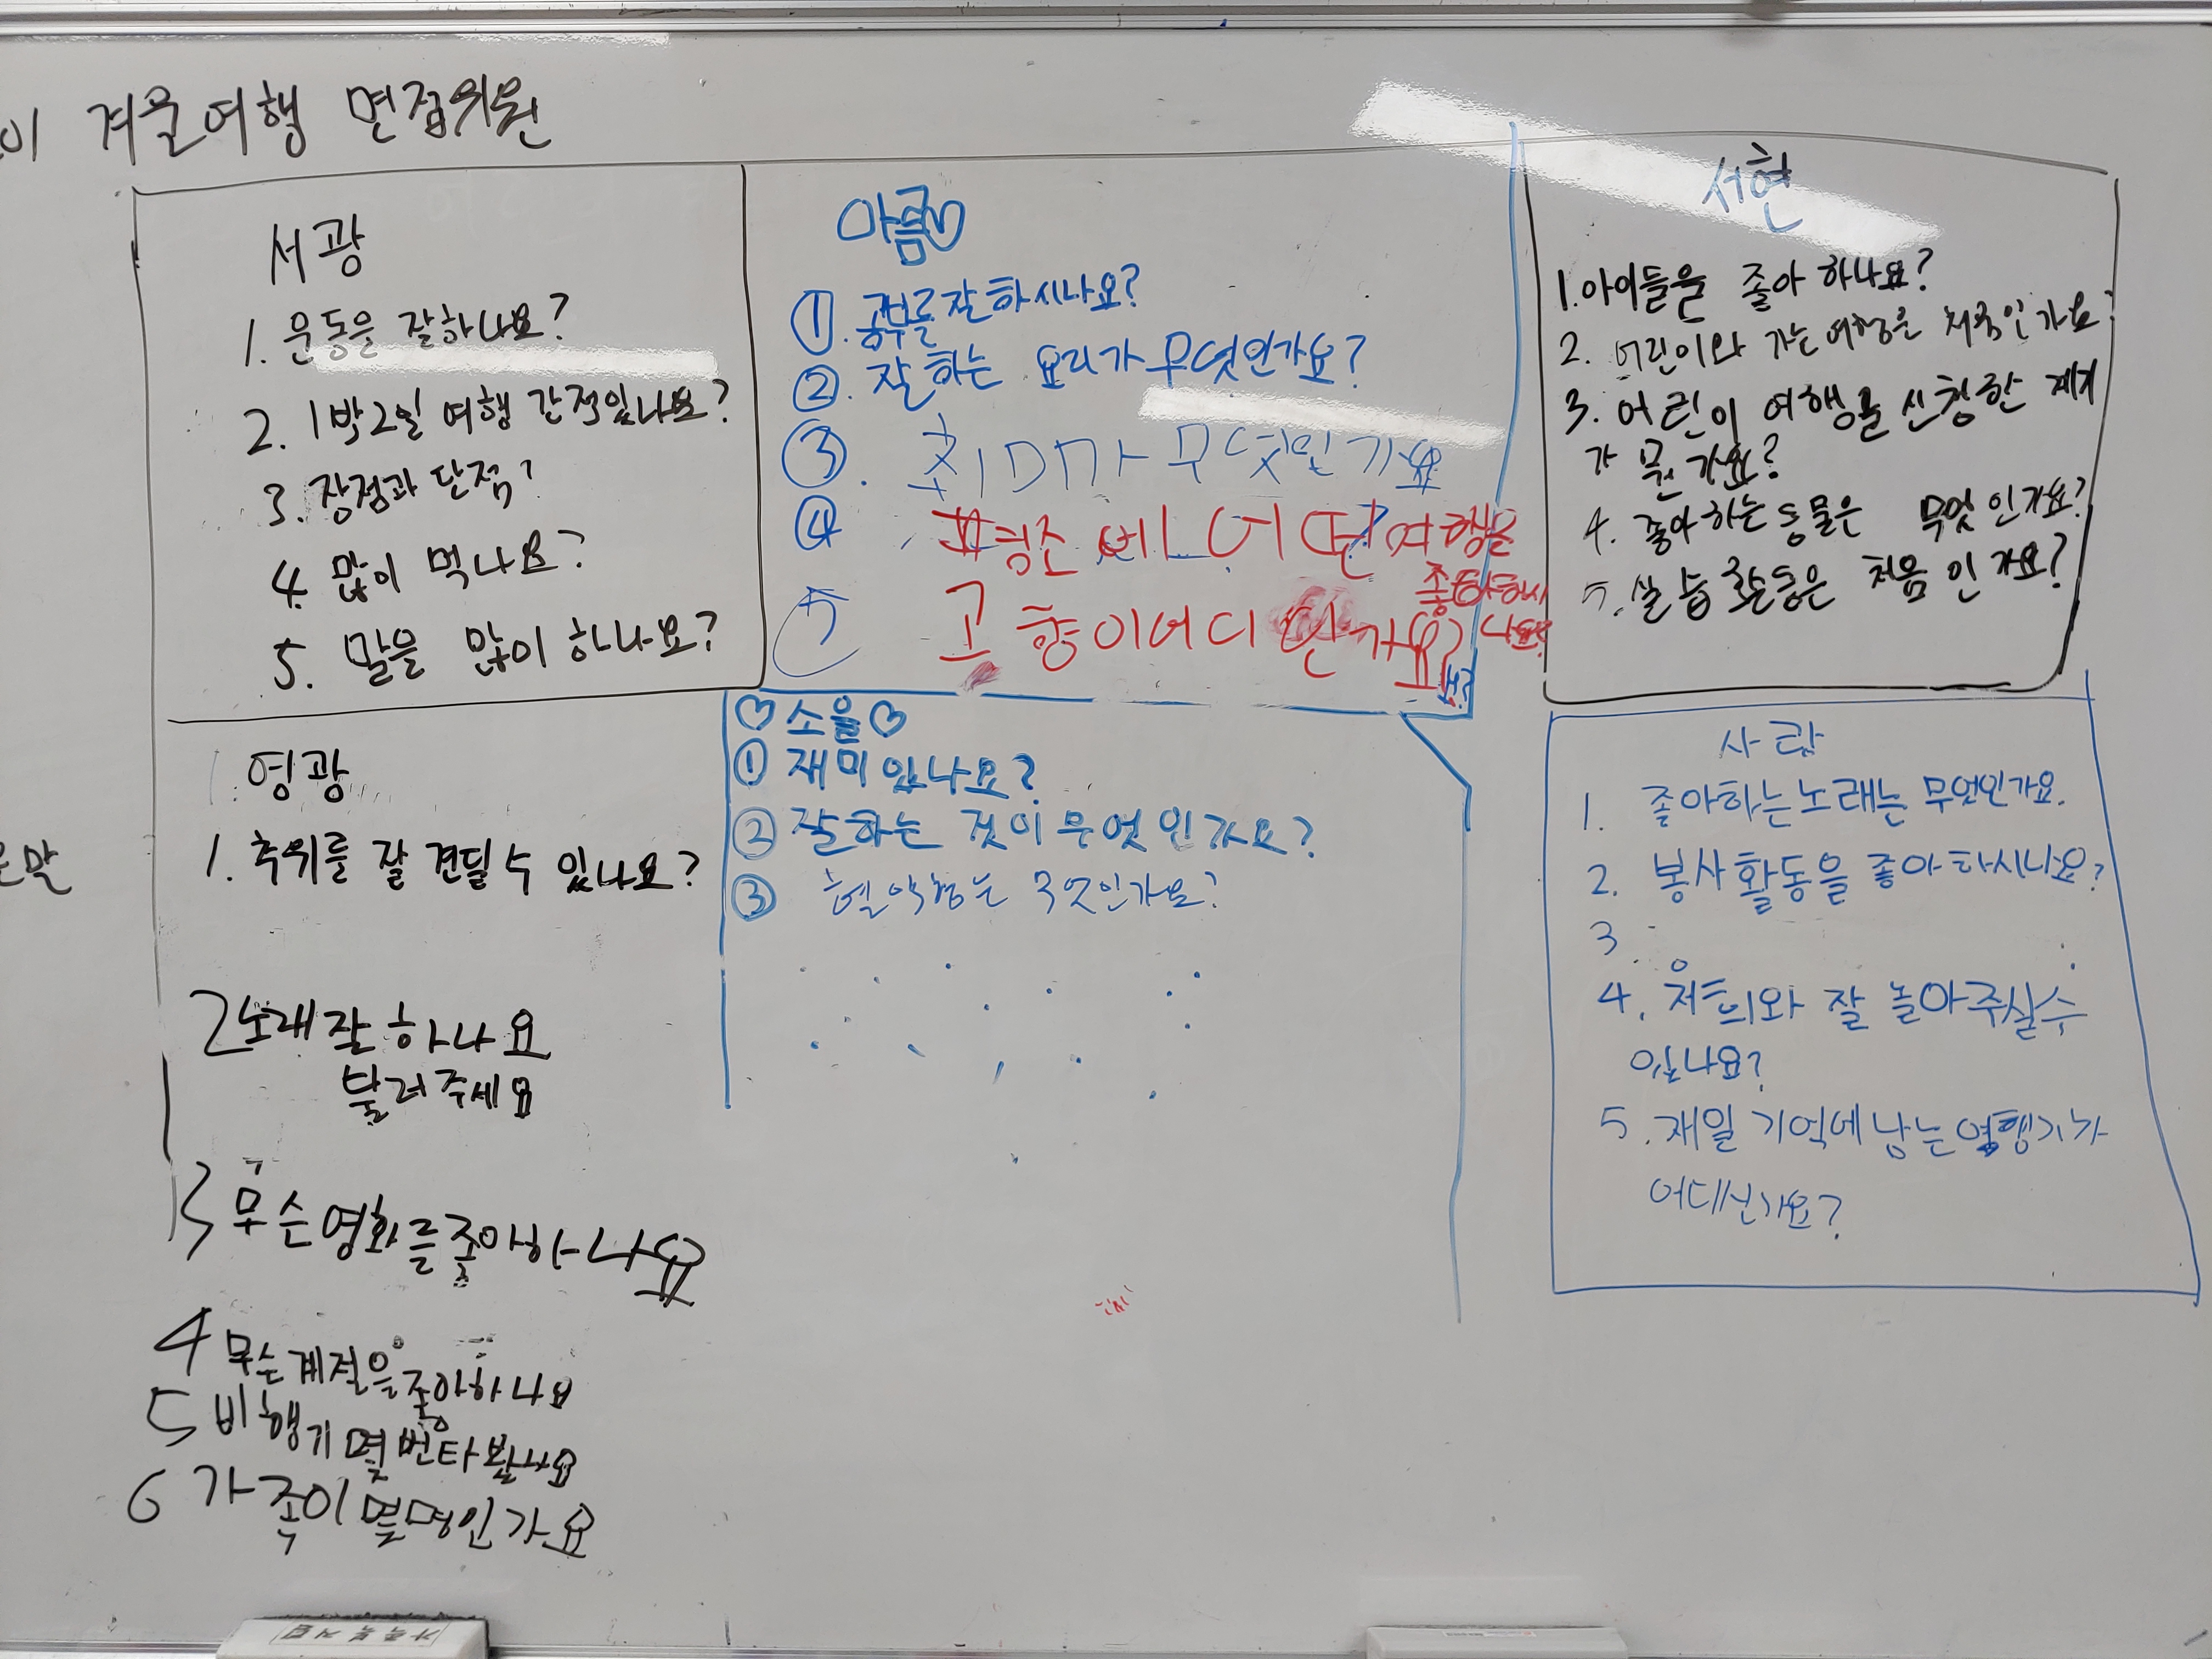 이 겨울여행 면접위원
서광
1. 운동을 잘하나요?
2. 1박2일 여행 간적있나요?
3. 장점과 단점?
4. 많이 먹나요?
5. 말을 많이 하나요?
아름♡
① 공부를잘하시나요?
② 잘하는 요리가무엇인가요?
③ 취미가 무엇인가요
④ 평소에 어떤여행을
좋아하시
나요?
⑤ 고향이어디인가요?
서현
1. 아이들을 좋아하나요?
2. 어린이와 가는여행은 처음인가요?
3. 어린이 여행을 신청한 계기
가 뭔가요?
4. 좋아하는동물은 무엇인가요?
5. 실습활동은 처음인가요?
영광
1. 추위를 잘 견딜수 있나요?
2 노래잘하나요
불러주세요
3 무슨영화를좋아하나요
4 무슨계절을좋아하나요
5 비행기몇번타봤나요
6 가족이몇명인가요
♡소율♡
① 재미있나요?
② 잘하는 것이무엇인가요?
③ 무엇인가요?
사랑
1. 좋아하는노래는무엇인가요.
2. 봉사활동을좋아하시나요?
3.
4. 저희와 잘 놀아주실수
있나요?
5. 재일 기억에남는
어디신가요?
은말